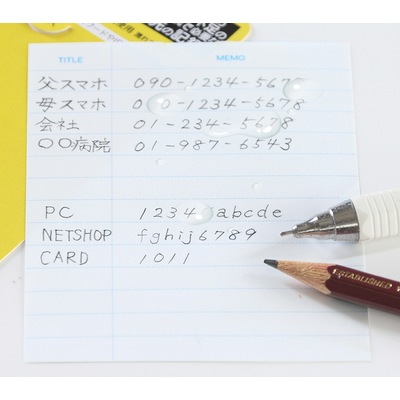 TITLE MEMO
父スマホ 090-1234-5678
母スマホ 090-1234-5678
会社 01-234-5678
〇〇病院 01-987-6543
PC 1234 abcde
NETSHOP fghij6789
CARD 1011
ESTABLISHED